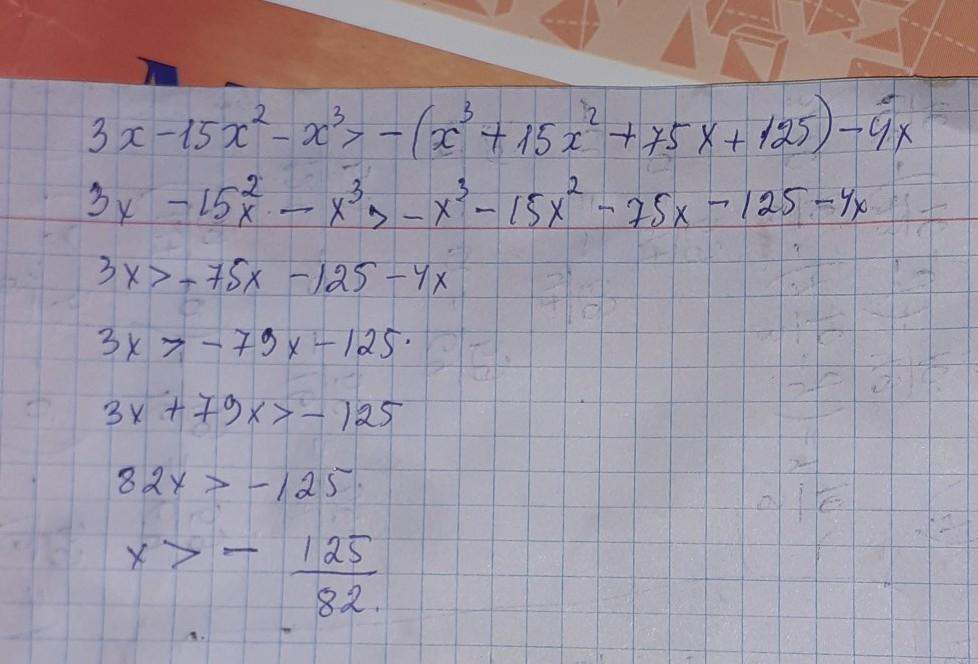 3x - 15x² - x³ > -(x³ + 15x² + 75x + 125) - 4x
3x - 15x² - x³ > -x³ - 15x² - 75x - 125 - 4x
3x > -75x - 125 - 4x
3x > -79x - 125.
3x + 79x > -125
82x > -125.
x > - 125/82.